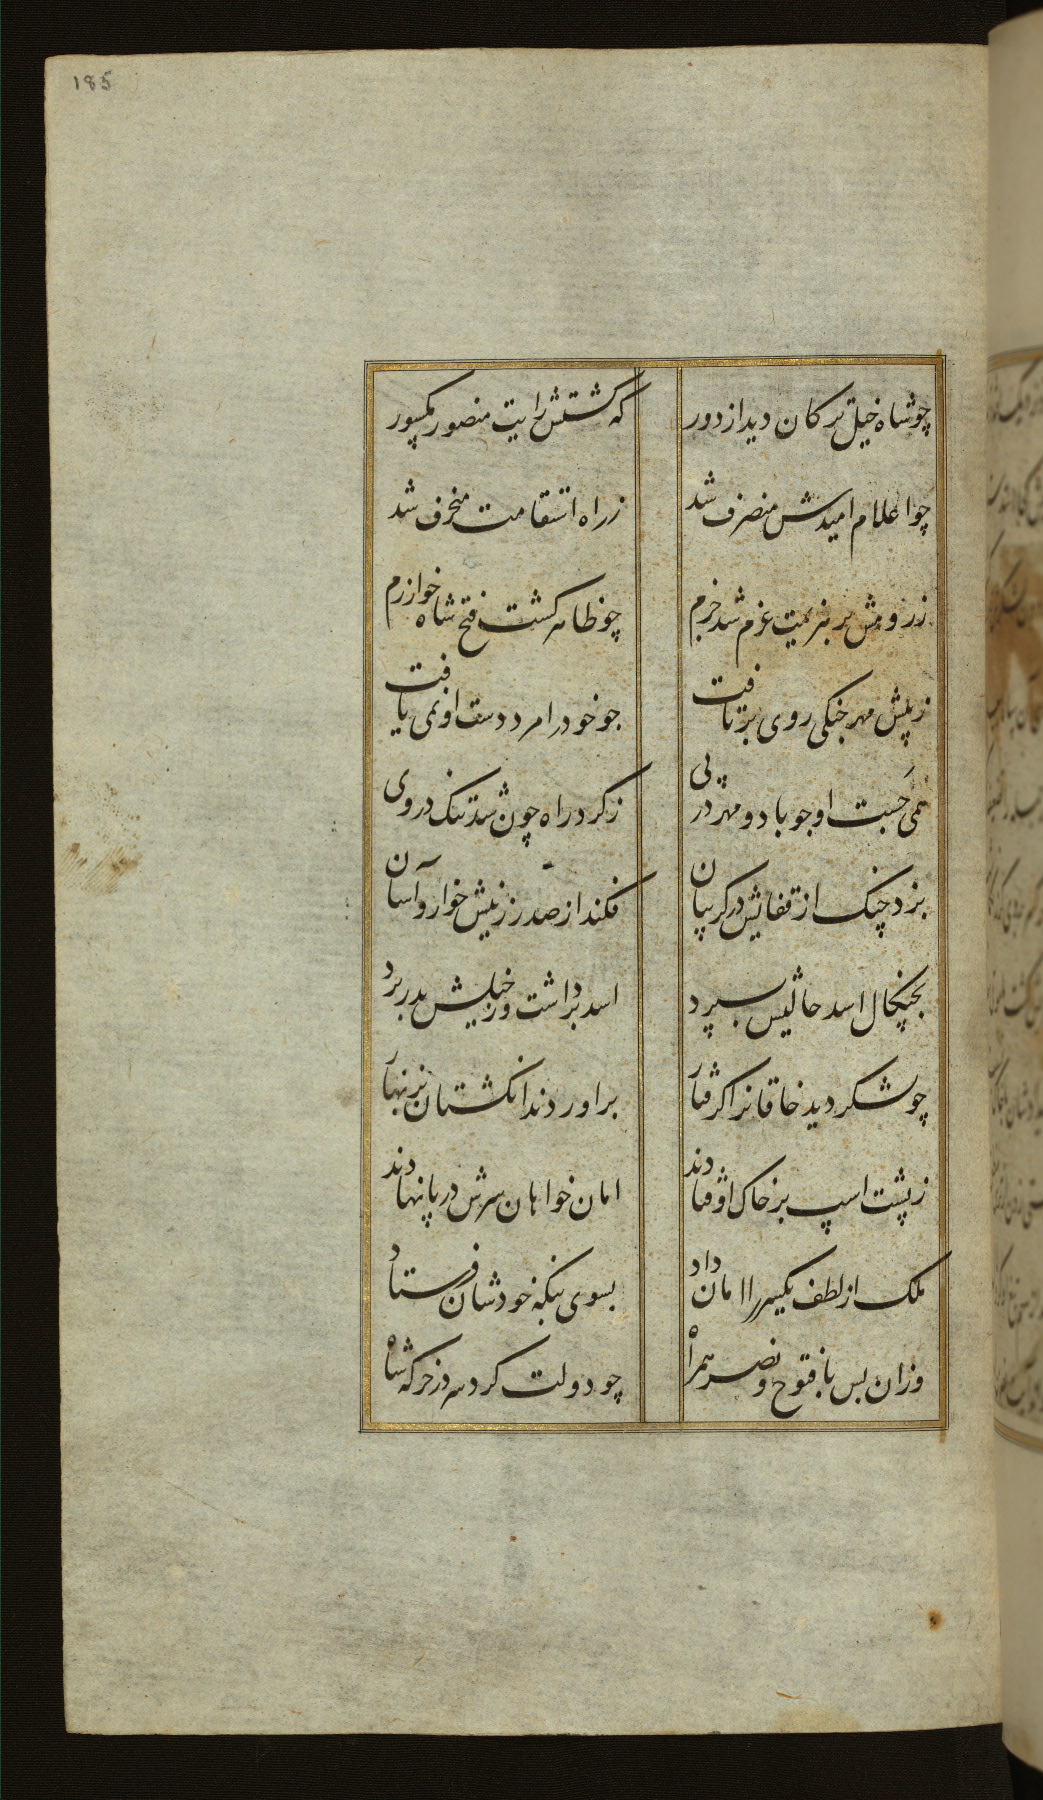 185
چو شاه خیل ترکان دید از دور
که گشتش رایت منصور مکسور
چو اعلام امیدش منصرف شد
ز راه استقامت منحرف شد
ز رومش بر هزیمت عزم شد جزم
چو ظاهر گشت فتح شاه خوارزم
ز پیش مهر جنگی روی برتافت
جو خود را مرد دست او نمی یافت
همی جست او جو باد و مهر در پی
ز گرد راه چون شد تنگ در وی
بزد چنگ از قفایش در گریبان
فکند از صدر زینش خوار و آسان
بچنگال اسد حالیش بسپرد
اسد برداشت وز خیلش بدر برد
چو لشکر دید خاقانرا گرفتار
براوردند انگشتان بزنهار
ز پشت اسپ بر خاک اوفتادند
امان خواهان سرش در پا نهادند
ملک از لطف یکسر را امان داد
بسوی بنگه خودشان فرستاد
وزان بس با فتوح و نصر همراه
چو دولت کرد سر در خرگه شاه